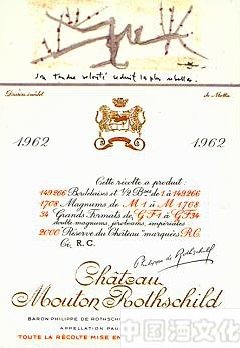 sa tendre volonté séduit la plus rebelle.
Dessin inédit de Matta
1962 1962
Cette récolte a produit:
149.266 Bordelaises et 1/2 Bses de 1 à 149.266
1708 Magnums de M 1 à M 1708
34 Grands Formats de G F 1 à G F 34
double magnums, jéroboams, impériales
2000 "Réserve du Château" marquées R.C.
Ci, R. C.
Philippe de Rothschild
Château
Mouton Rothschild
BARON PHILIPPE DE ROTHSC
APPELLATION PAU
TOUTE LA RÉCOLTE MISE EN
中国酒文化